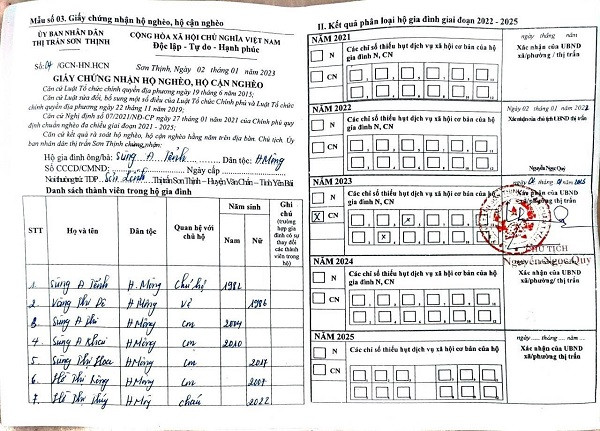 Mẫu số 03. Giấy chứng nhận hộ nghèo, hộ cận nghèo
ỦY BAN NHÂN DÂN
THỊ TRẤN SƠN THỊNH
CỘNG HÒA XÃ HỘI CHỦ NGHĨA VIỆT NAM
Độc lập - Tự do - Hạnh phúc
Số: 04 /GCN-HN.HCN
Sơn Thịnh, Ngày 02 tháng 01 năm 2023
GIẤY CHỨNG NHẬN HỘ NGHÈO, HỘ CẬN NGHÈO
Căn cứ Luật Tổ chức chính quyền địa phương ngày 19 tháng 6 năm 2015;
Căn cứ Luật sửa đổi, bổ sung một số điều của Luật Tổ chức Chính phủ và Luật Tổ chức
chính quyền địa phương ngày 22 tháng 11 năm 2019;
Căn cứ Nghị định số 07/2021/NĐ-CP ngày 27 tháng 01 năm 2021 của Chính phủ quy
định chuẩn nghèo đa chiều giai đoạn 2021 - 2025;
Căn cứ kết quả rà soát hộ nghèo, hộ cận nghèo hằng năm trên địa bàn. Chủ tịch. Ủy
ban nhân dân thị trấn Sơn Thịnh chứng nhận:
Hộ gia đình ông/bà: Sùng A Tênh Dân tộc: H Mông
Số CCCD/CMND: Ngày cấp
Nơi thường trú: TDP Thị trấn Sơn Thịnh – Huyện Văn Chấn – Tỉnh Yên Bái
Danh sách thành viên trong hộ gia đình
STT Họ và tên Dân tộc Quan hệ với chủ hộ Năm sinh Nam Nữ Ghi chú (trường hợp gia đình có sự thay đổi các thành viên trong hộ)
1. Sùng A Tênh H. Mông Chủ hộ 1982
2. Vàng Thị Dê H Mông Vợ 1986
3. Sùng A H Mông con 2004
4. Sùng A H Mông con 2010
5. Sùng Thị Hoa H Mông con 2017
6. Hồ Thị H Mông con 2007
7. Hồ Thị Thúy H Mông cháu 2022
II. Kết quả phân loại hộ gia đình giai đoạn 2022 - 2025
NĂM 2021
N
CN
Các chỉ số thiếu hụt dịch vụ xã hội cơ bản của hộ
gia đình N, CN
ngày tháng năm
Xác nhận của UBND
xã/phường / thị trấn
NĂM 2022
N
CN
Các chỉ số thiếu hụt dịch vụ xã hội cơ bản của hộ
gia đình N, CN
Ngày 02 tháng 01 năm 2022
Xác nhận của chủ tịch UBND thị trấn
Nguyễn Ngọc Quý
NĂM 2023
N
X CN
Các chỉ số thiếu hụt dịch vụ xã hội cơ bản của hộ
gia đình N, CN
X
X
Xác nhận của UBND
xã/phường / thị trấn
CHỦ TỊCH
Nguyễn Ngọc Quý
NĂM 2024
N
CN
Các chỉ số thiếu hụt dịch vụ xã hội cơ bản của hộ
gia đình N, CN
Xác nhận của UBND
xã/phường / thị trấn
NĂM 2025
N
Các chỉ số thiếu hụt dịch vụ xã hội cơ bản của hộ
ngày ..... tháng .... năm ...
Xác nhận của UBND
xã/phường/thị trấn